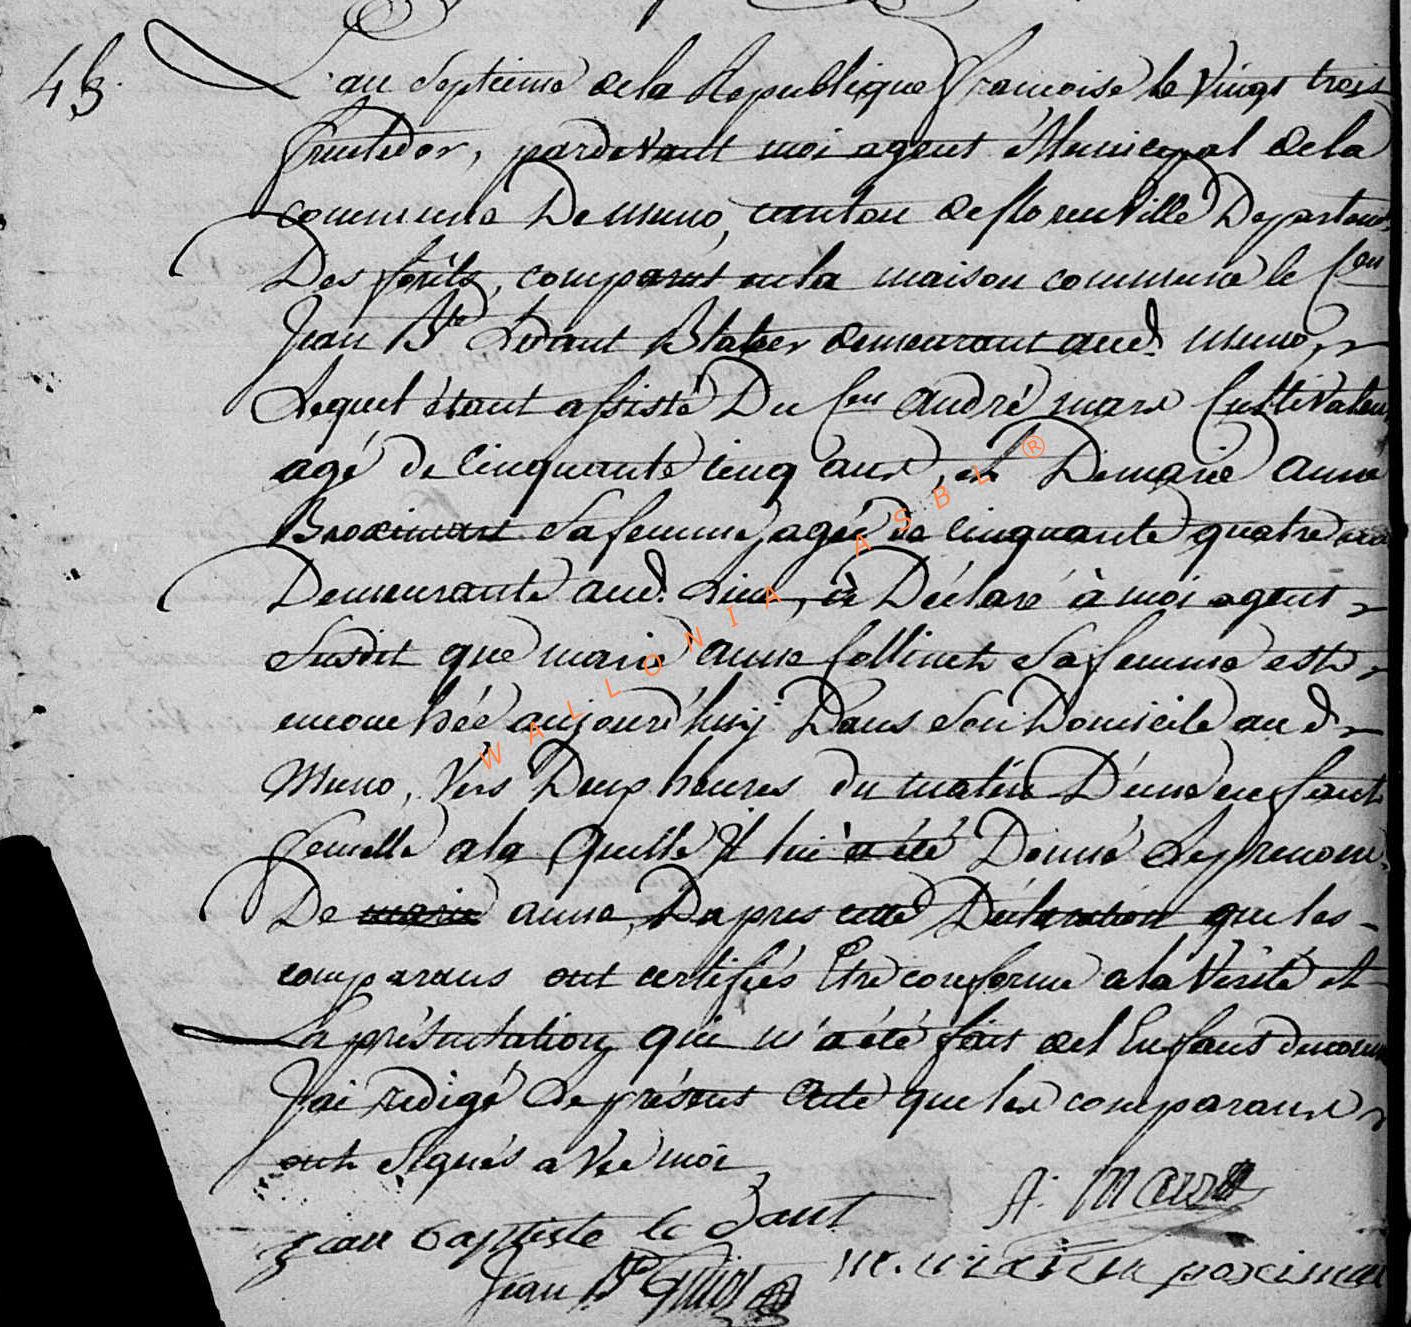 43.
L'an Septieme de la Republique francoise le vingt trois
fructidor, pardevant moi agent Municipal de la
commune De muno, canton de florenville Departem.
Des forêts, comparut en la maison commune le Cen
Jean Bte Ledant demeurant aud. muno,
Lequel étant assisté Du Cen andré mars Cultivateur
agé de cinquante cinq ans, et De marie anne
sa femme, agée de cinquante quatre ans
Demeurante aud. Lieu, à Déclaré à moi agent
Susdit que marie anne Collinet Sa femme est
accouchée aujourd'huy Dans Son Domicile au d.
Muno, vers Deux heures du matin D'une enfant
femelle a la quelle Il lui a été Donné Le prenom
De marie anne, D'apres cette Déclaration que les
comparans ont certifiés Etre conforme a la Vérité et
La présentation qui m'a été fait de l'Enfant denommé
J'ai redigé Le présent acte que les comparans
ont Signés avec moi
jean baptiste le dant
A. Mars
Jean Bte
WALLONIA ASBL ®